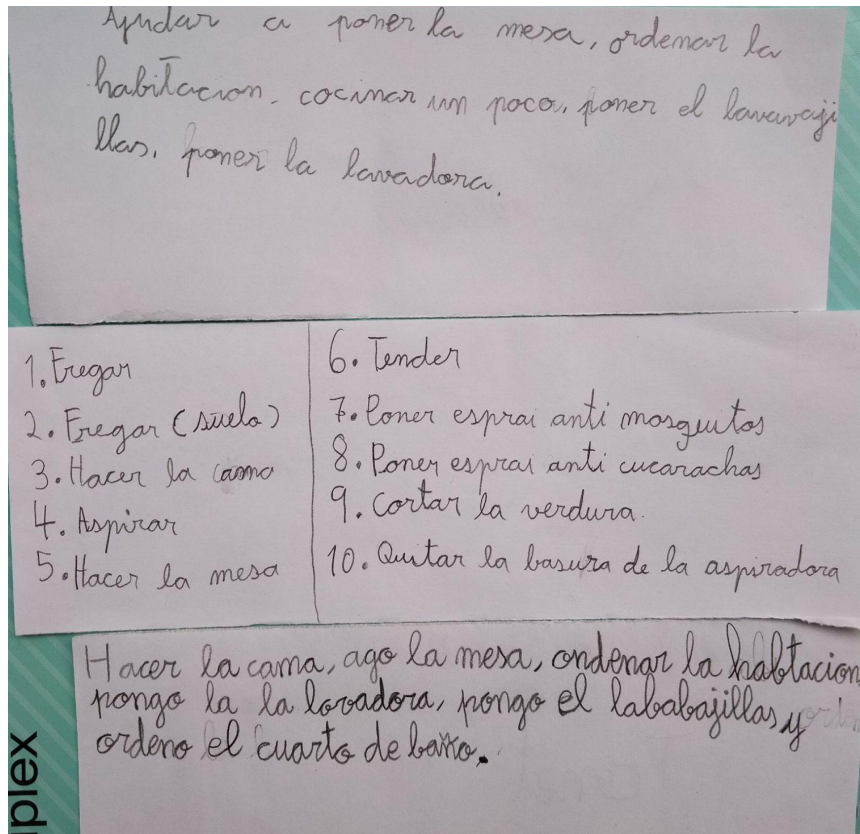 Ayudar a poner la mesa, ordenar la
habitacion, cocinar un poco, poner el lavavaji
llas, poner la lavadora.
1. Fregar
2. Fregar (suelo)
3. Hacer la cama
4. Aspirar
5. Hacer la mesa
6. Tender
7. Poner esprai anti mosquitos
8. Poner esprai anti cucarachas
9. Cortar la verdura.
10. Quitar la basura de la aspiradora
Hacer la cama, ago la mesa, ordenar la habtacion
pongo la la lavadora, pongo el lababajillas y
ordeno el cuarto de baño.
plex